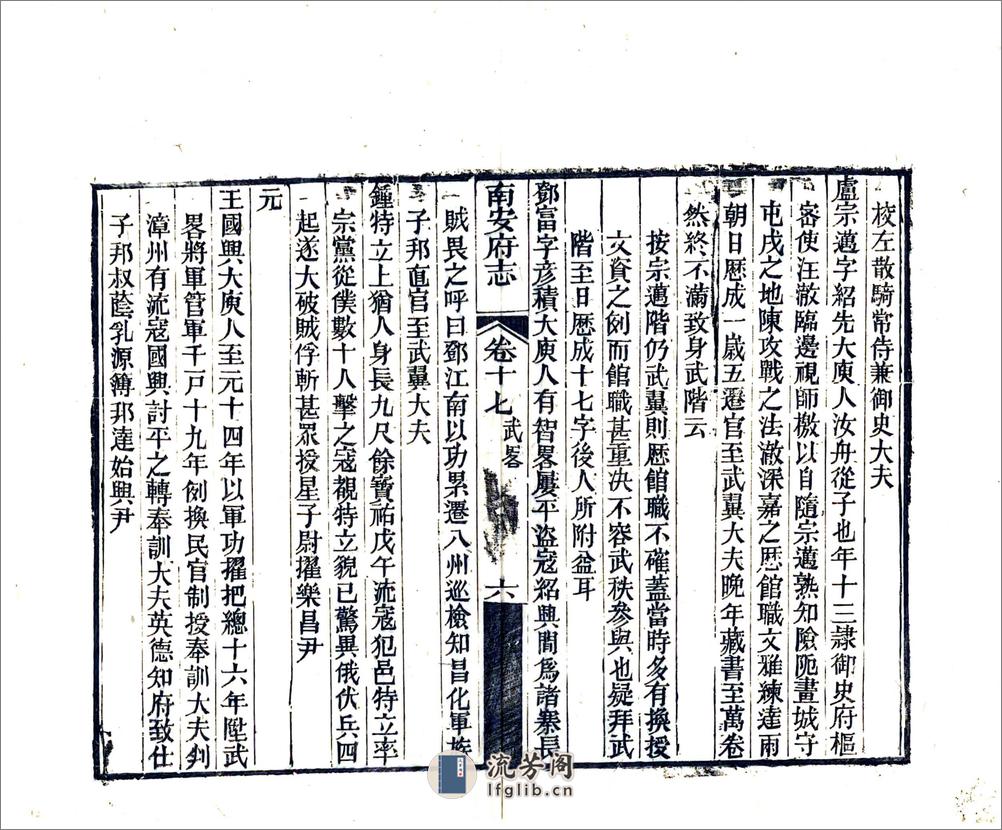 校左散騎常侍兼御史大夫
盧宗邁字紹先大庾人汝舟從子也年十三隷御史府樞
密使汪澈臨邊視師檄以自隨宗邁熟知險阨畫城守
屯戌之地陳攻戰之法澈深嘉之歴館職文雅練達兩
朝日歴成一歲五遷官至武翼大夫晚年藏書至萬卷
然終不滿致身武階云
按宗邁階仍武翼則歴館職不確蓋當時多有換授
文資之例而館職甚重决不容武秩參與也疑拜武
階至日歴成十七字後人所附益耳
鄧富字彦積大庾人有智畧屢平盜寇紹興間爲諸寨長
南安府志
卷十七
武畧
六
賊畏之呼曰鄧江南以功累遷八州巡檢知昌化軍族
子邦直官至武翼大夫
鍾特立上猶人身長九尺餘寶祐戊午流寇犯邑特立率
宗黨從僕數十人擊之寇覘特立貌已驚異俄伏兵四
起遂大破賊俘斬甚眾授星子尉擢樂昌尹
元
王國興大庾人至元十四年以軍功擢把總十六年陞武
畧將軍管軍千戸十九年例換民官制授奉訓大夫判
漳州有流寇國興討平之轉奉訓大夫英德知府致仕
子邦叔蔭乳源簿邦達始興尹
流芳阁
lfglib.cn